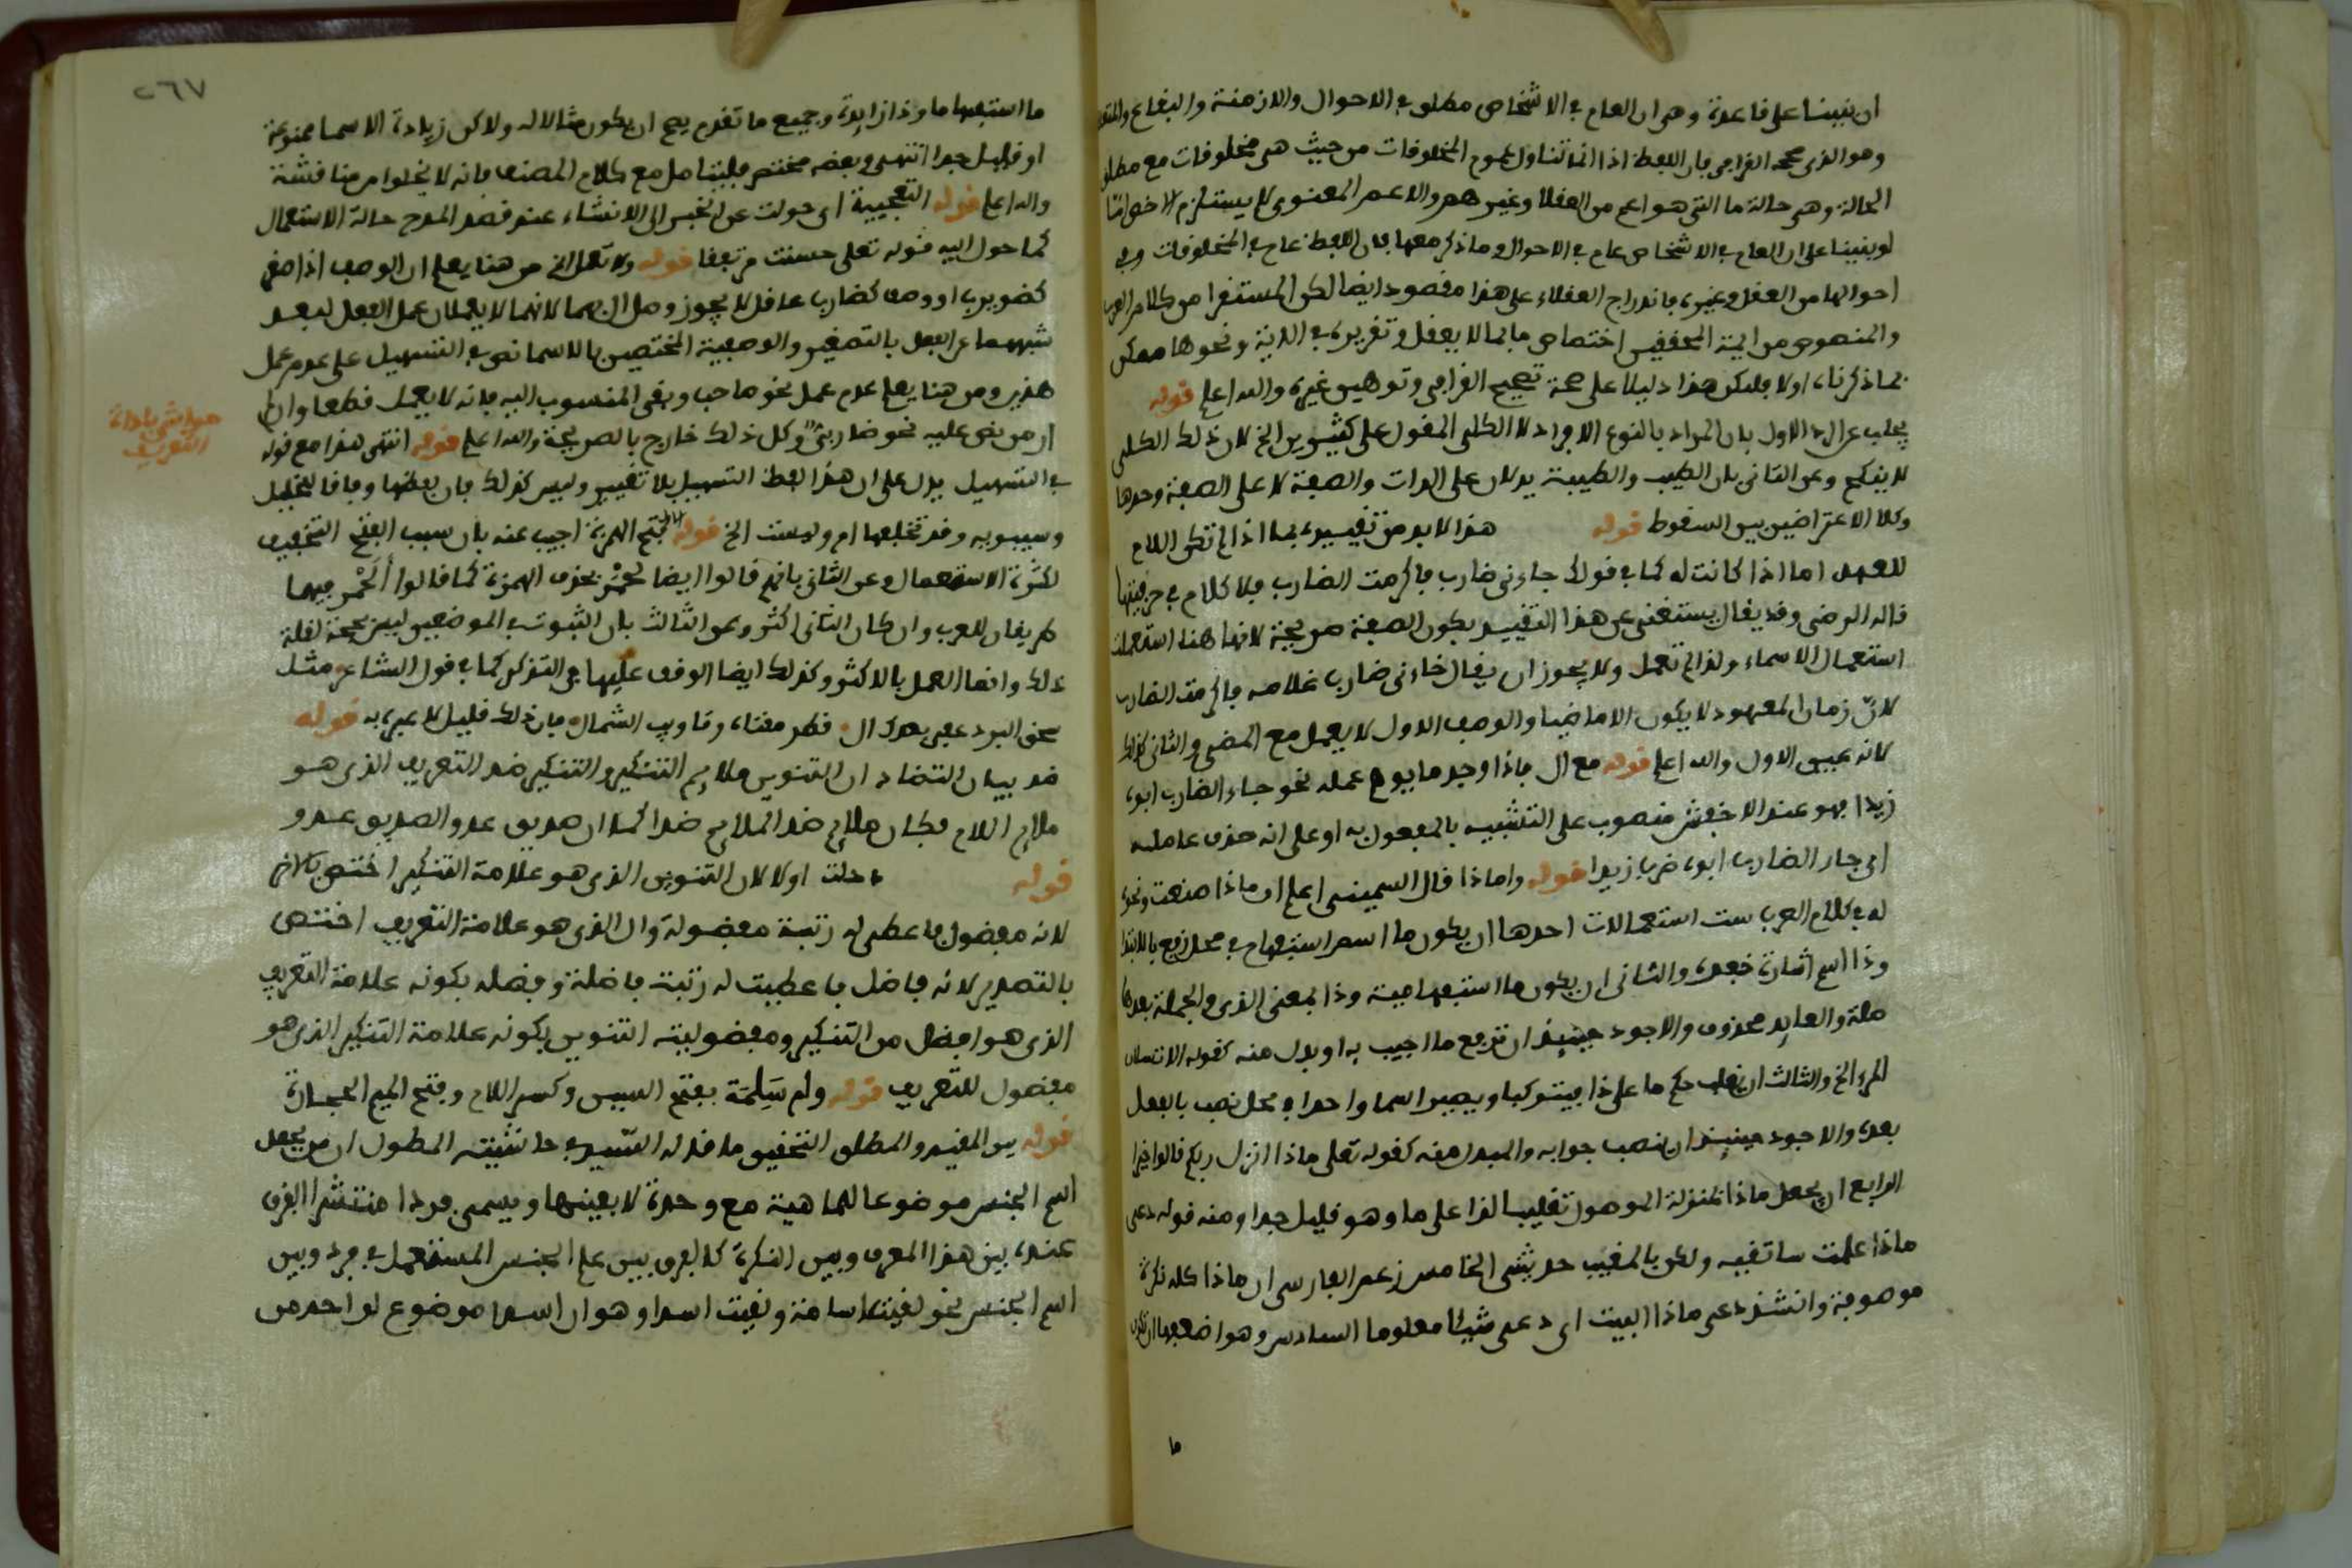 ان بنينا على قاعدة وهي ان العام في الاشخاص مطلق في الاحوال والازمنة والبقاع
وهو الذي صححه القرافي فان اللفظ اذا انما تناول عموم المخلوقات من حيث هي مخلوقات مع مطلق
الحالة وهي حالة ما التي هو اعم من العقلا وغيرهم والاعم المعنوي لا يستلزم الاخص
لو بنينا على ان العام في الاشخاص عام في الاحوال وما ذكر معها فان اللفظ عام في المخلوقات وفي
احوالها من العقل وغيره فاندراج العقلاء على هذا مقصود ايضا لكن المستقرا من كلام العرب
والمنصوص من ايمة المحققين اختصاص ما بما لا يعقل وتقريره في الاية ونحوها ممكن
بما ذكرناه اولا فليكن هذا دليلا على صحة تصحيح القرافي وتوهيس غيره والله اعلم قوله
يجاب عن الاول بان المراد بالنوع الافراد لا الكلي المقول على كثيرين الخ لان ذلك الكلي
لا ينفكح وعن الثاني بان الطيب والطيبة يدلان على الذات والصفة لا على الصفة وحدها
وكلا الاعتراضين بين السقوط قوله هذا لا بد من تقييده بما اذا لم تكن اللام
للعهد اما اذا كانت له كما في قولك جاءني ضارب فاكرمت الضارب فلا كلام في حرفيتها
قاله الرضي وقد يقال يستغنى عن هذا التقييد بكون الصفة صريحة لانها هنا استعملت
استعمال الاسماء ولذا لم تعمل ولا يجوز ان يقال جاءني ضارب غلامه فاكرمت الضارب
لان زمان المعهود لا يكون الا ماضيا والوصف الاول لا يعمل مع المضي والثاني كذلك
لانه عين الاول والله اعلم قوله مع ال فاذا وجد ما يوهم عمله نحو جاء الضارب ابوه
زيدا فهو عند الاخفش منصوب على التشبيه بالمفعول به او على انه حذف عامله
اي جاء الضارب ابوه ضرب زيدا قوله واماذا قال السميني اعلم ان ماذا صنعت ونحوه
له في كلام العرب ست استعمالات احدها ان يكون ما اسم استفهام في محل رفع بالابتدا
وذا اسم اشارة خبره والثاني ان يكون ما استفهامية وذا بمعنى الذي والجملة بعدها
صلة والعايد محذوف والاجود حينيذ ان ترفع ما اجيب به او بدل منه كقوله الا تسالان
المرء الخ والثالث ان يغلب حكم ما على ذا فيتركبا ويصيرا اسما واحدا في محل نصب بالفعل
بعده والاجود حينيذ ان ينصب جوابه والمبدل منه كقوله تعلى ماذا انزل ربكم قالوا خيرا
الرابع ان يجعل ماذا بمنزلة الموصول تغليبا لذا على ما وهو قليل جدا ومنه قوله دعي
ماذا علمت ساتقيه ولكن بالمغيب حدثيني الخامس زعم الفارسي ان ماذا كله نكرة
موصوفة وانشد دعي ماذا البيت اي دعي شيئا معلوما السادس وهو اضعفها ان تكون
ما
٢٦٧
ما استفهاما وذا زايدة وجميع ما تقدم يصح ان يكون مثالا له ولاكن زيادة الاسما ممنوعة
او قليل جدا انتهى وبعضه مختصر فليتامل مع كلام المصنف فانه لا يخلوا من مناقشة
والله اعلم قوله التعجيبية اي حولت عن الخبر الى الانشاء عند قصد المدح حالة الاستعمال
كما حول اليه قوله تعلى حسنت مرتفقا قوله ولا تعمل الخ من هنا يعلم ان الوصف اذا صغر
كضويرب او وصف كضارب عاقل لا يجوز وصل ال بهما لانهما لا يعملان عمل الفعل لبعد
شبههما عن الفعل بالتصغير والوصفية المختصين بالاسما نص في التسهيل على عدم عمل
هذين ومن هنا يعلم عدم عمل نحو صاحب وبقي المنسوب اليه فانه لا يعمل قطعا وان لم
ار من نص عليه نحو ضاربي وكل ذلك خارج بالصريحة والله اعلم قوله انتهى هذا مع قوله
في التسهيل يدل على ان هذا لفظ التسهيل بلا تغيير وليس كذلك فان بعضها وفاقا للخليل
وسيبويه وقد تخلفها ام وليست الخ قوله فتح الهمزة اجيب عنه بان سبب الفتح التخفيف
لكثرة الاستعمال وعن الثاني بانهم قالوا ايضا لحمر بحذف الهمزة كما قالوا ألحمر فهما
طريقان للعرب وان كان الثاني اكثر وعن الثالث بان الثبوت في الموضعين ليس بحجة لقلة
ذلك وانما العمل بالاكثر وكذلك ايضا الوقف عليها في التذكر كما في قول الشاعر مثل
سحق البرد عفى بعدك ال قطر مغناه وتاويب الشمال فان ذلك قليل لا عبرة به قوله
ضد بيان التضاد ان التنوين ملايم التنكير والتنكير ضد التعريف الذي هو
ملايم اللام فكان ملايم ضد الملايم ضدا كما ان صديق عدو الصديق عدو
قوله دلت اولا لان التنوين الذي هو علامة التنكير اختص بالاخر
لانه مفضول فاعطي له رتبة مفضولة وال الذي هو علامة التعريف اختص
بالتصدير لانه فاضل فاعطيت له رتبة فاضلة وفضله بكونه علامة التعريف
الذي هو افضل من التنكير ومفضولية التنوين بكونه علامة التنكير الذي هو
مفضول للتعريف قوله ولم سَلِمَة بفتح السين وكسر اللام وفتح الميم الحجارة
قوله بين المقيد والمطلق التحقيق ما قاله السيد في حاشيته المطول ان من يجعل
اسم الجنس موضوعا للماهية مع وحدة لا بعينها ويسمى فردا منتشرا الفرق
عنده بين هذا المعرف وبين النكرة كالفرق بين علم الجنس المستعمل في فرد وبين
اسم الجنس نحو لقيت اسامة ولقيت اسدا وهو ان اسدا موضوع لواحد من
حواشي باداة
التعريف